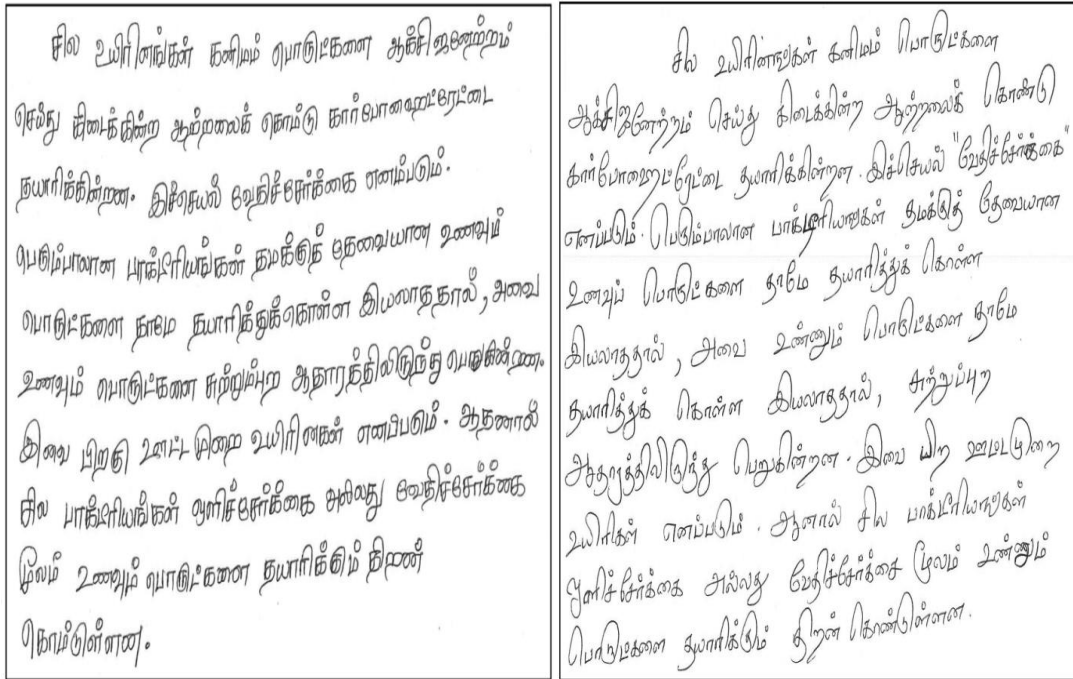 சில உயிரினங்கள் கனிமம் பொருட்களை ஆக்சிஜனேற்றம்
செய்து கிடைக்கின்ற ஆற்றலைக் கொம்டு கார்போஹைட்ரேட்டை
தயாரிக்கின்றன. இச்செயல் வேதிச்சேர்க்கை எனம்படும்.
பெரும்பாலான பாக்டீரியங்கள் தமக்குத் தேவையான உணவும்
பொருட்களை தாமே தயாரித்துக்கொள்ள இயலாததால், அவை
உணவும் பொருட்களை சுற்றும்புற ஆதாரத்திலிருந்து பெறுகின்றன.
இவை பிறகு ஊட்ட முறை உயிரிகள் எனப்படும். ஆதனால்
சில பாக்டீரியங்கள் ஒளிச்சேர்க்கை அல்லது வேதிச்சேர்க்கை
மூலம் உணவும் பொருட்களை தயாரிக்கிம் திறன்
கொம்டுள்ளன.
சில உயிரினங்கள் கனிமம் பொருட்களை
ஆக்சிஜனேற்றம் செய்து கிடைக்கின்ற ஆற்றலைக் கொண்டு
கார்போஹைட்ரேட்டை தயாரிக்கின்றன. இச்செயல் "வேதிச்சேர்க்கை"
எனப்படும். பெரும்பாலான பாக்டீரியாங்கள் தமக்குத் தேவையான
உணவுப் பொருட்களை தாமே தயாரித்துக் கொள்ள
இயலாததால், அவை உண்ணும் பொருட்களை தாமே
தயாரித்துக் கொள்ள இயலாததால், சுற்றுப்புற
ஆதாரத்திலிருந்து பெறுகின்றன. இவை பிற ஊட்டமுறை
உயிரிகள் எனப்படும். ஆனால் சில பாக்டீரியாங்கள்
ஒளிச்சேர்க்கை அல்லது வேதிச்சேர்க்கை மூலம் உண்ணும்
பொருட்களை தயாரிக்கும் திறன் கொண்டுள்ளன.